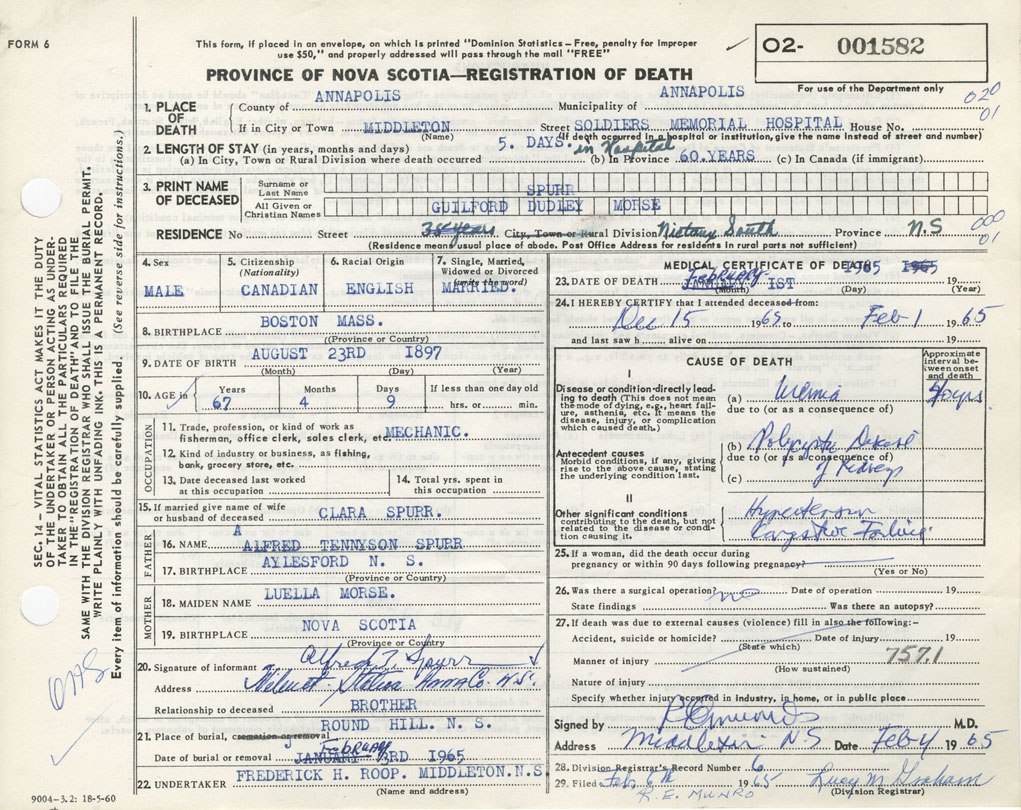 FORM 6
This form, if placed in an envelope, on which is printed "Dominion Statistics – Free, penalty for improper
use $50," and properly addressed will pass through the mail "FREE"
✓ O2- 001582
For use of the Department only
PROVINCE OF NOVA SCOTIA—REGISTRATION OF DEATH
020
01
1. PLACE OF DEATH
County of ANNAPOLIS Municipality of ANNAPOLIS
If in City or Town MIDDLETON Street SOLDIERS MEMORIAL HOSPITAL House No.
(Name) (If death occurred in a hospital or institution, give the name instead of street and number)
2. LENGTH OF STAY (in years, months and days)
(a) In City, Town or Rural Division where death occurred 5. DAYS. in Hospital (b) In Province 60.YEARS (c) In Canada (if immigrant)
3. PRINT NAME OF DECEASED
Surname or Last Name SPURR
All Given or Christian Names GUILFORD DUDLEY MORSE
RESIDENCE No Street City, Town or Rural Division Nictaux South Province N.S
(Residence means usual place of abode. Post Office Address for residents in rural parts not sufficient)
000
01
4. Sex
MALE
5. Citizenship
(Nationality)
CANADIAN
6. Racial Origin
ENGLISH
7. Single, Married,
Widowed or Divorced
(write the word)
MARRIED.
8. BIRTHPLACE BOSTON MASS.
(Province or Country)
9. DATE OF BIRTH AUGUST 23RD 1897
(Month) (Day) (Year)
10. AGE in Years Months Days If less than one day old
67 4 9 hrs. or min.
OCCUPATION
11. Trade, profession, or kind of work as
fisherman, office clerk, sales clerk, etc. MECHANIC.
12. Kind of industry or business, as fishing,
bank, grocery store, etc.
13. Date deceased last worked
at this occupation
14. Total yrs. spent in
this occupation
15. If married give name of wife
or husband of deceased CLARA SPURR.
FATHER
A
16. NAME ALFRED TENNYSON SPURR
17. BIRTHPLACE AYLESFORD N. S.
(Province or Country)
MOTHER
18. MAIDEN NAME LUELLA MORSE.
19. BIRTHPLACE NOVA SCOTIA
(Province or Country)
20. Signature of informant Alfred T. Spurr
Address Wilmot Station Anna Co. N.S.
Relationship to deceased BROTHER
21. Place of burial, cremation or removal ROUND HILL. N. S.
February
Date of burial or removal JANUARY 3RD 1965
22. UNDERTAKER FREDERICK H. ROOP. MIDDLETON.N.S
(Name and address)
9004-3.2: 18-5-60
MEDICAL CERTIFICATE OF DEATH
February 1965
23. DATE OF DEATH JANUARY IST 1965 19
(Month) (Day) (Year)
24. I HEREBY CERTIFY that I attended deceased from:
Dec 15 1965 to Feb 1 1965
and last saw h alive on 19
CAUSE OF DEATH
Approximate
interval be-
tween onset
and death
I
Disease or condition directly lead-
ing to death (This does not mean
the mode of dying, e.g., heart fail-
ure, asthenia, etc. It means the
disease, injury, or complication
which caused death.)
(a) Uremia
due to (or as a consequence of)
yrs.
Antecedent causes
Morbid conditions, if any, giving
rise to the above cause, stating
the underlying condition last.
(b) Polycystic Disease
due to (or as a consequence of)
of Kidneys
(c)
II
Other significant conditions
contributing to the death, but not
related to the disease or condi-
tion causing it.
Hypertension
Congestive Failure
25. If a woman, did the death occur during
pregnancy or within 90 days following pregnancy?
(Yes or No)
26. Was there a surgical operation? no Date of operation 19
State findings Was there an autopsy?
27. If death was due to external causes (violence) fill in also the following:-
Accident, suicide or homicide? Date of injury 19
(State which)
757.1
Manner of injury
(How sustained)
Nature of injury
Specify whether injury occurred in industry, in home, or in public place
Signed by M.D.
Address Middleton NS Date Feb 4 1965
28. Division Registrar's Record Number 6
29. Filed Feb. 6th 1965 Lucy M. Graham
R. E. MUNRO (Division Registrar)
SEC. 14 – VITAL STATISTICS ACT MAKES IT THE DUTY
OF THE UNDERTAKER OR PERSON ACTING AS UNDER-
TAKER TO OBTAIN ALL THE PARTICULARS REQUIRED
IN THE "REGISTRATION OF DEATH" AND TO FILE THE
SAME WITH THE DIVISION REGISTRAR WHO SHALL ISSUE THE BURIAL PERMIT.
WRITE PLAINLY WITH UNFADING INK. THIS IS A PERMANENT RECORD.
Every item of information should be carefully supplied. (See reverse side for instructions.)